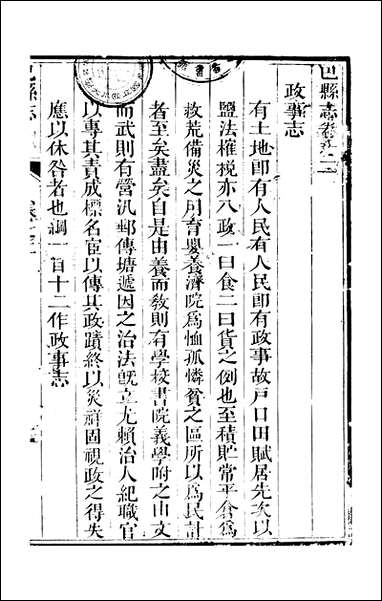 巴縣志卷之二
政事志
有土地卽有人民有人民卽有政事故戶口田賦居先次以
鹽法榷稅亦八政一曰食二曰貨之例也至積貯常平倉爲
救荒備災之用育嬰養濟院爲恤孤憐貧之區所以爲民計
者至矣盡矣自是由養而敎則有學校書院義學附之由文
而武則有營汛郵傳塘遞因之治法旣立尤賴治人紀職官
以專其責成標名宦以傳其政蹟終以災祥固視政之得失
應以休咎者也綱一目十二作政事志